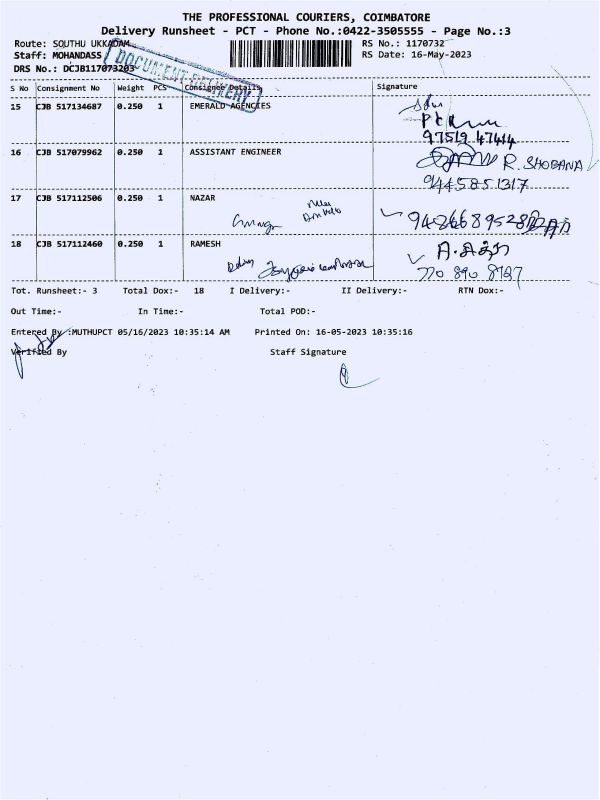 THE PROFESSIONAL COURIERS, COIMBATORE
Delivery Runsheet - PCT - Phone No.:0422-3505555 - Page No.:3
Route: SOUTHU UKKADAM
RS No.: 1170732
Staff: MOHANDASS
RS Date: 16-May-2023
DRS No.: DCJB117073203
DOCUMENT DELIVERY
S No Consignment No Weight PCS Consignee Details Signature
15 CJB 517134687 0.250 1 EMERALD AGENCIES
97519 47414
16 CJB 517079962 0.250 1 ASSISTANT ENGINEER
R. SHOBANA
9445851317
17 CJB 517112506 0.250 1 NAZAR
9426689528
18 CJB 517112460 0.250 1 RAMESH
770 890 8727
Tot. Runsheet:- 3 Total Dox:- 18 I Delivery:- II Delivery:- RTN Dox:-
Out Time:- In Time:- Total POD:-
Entered By :MUTHUPCT 05/16/2023 10:35:14 AM Printed On: 16-05-2023 10:35:16
Verified By Staff Signature